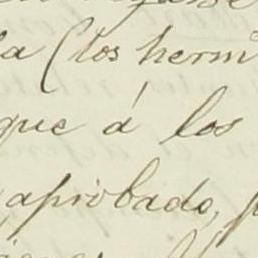 la (los herm
que á los
aprobado, p